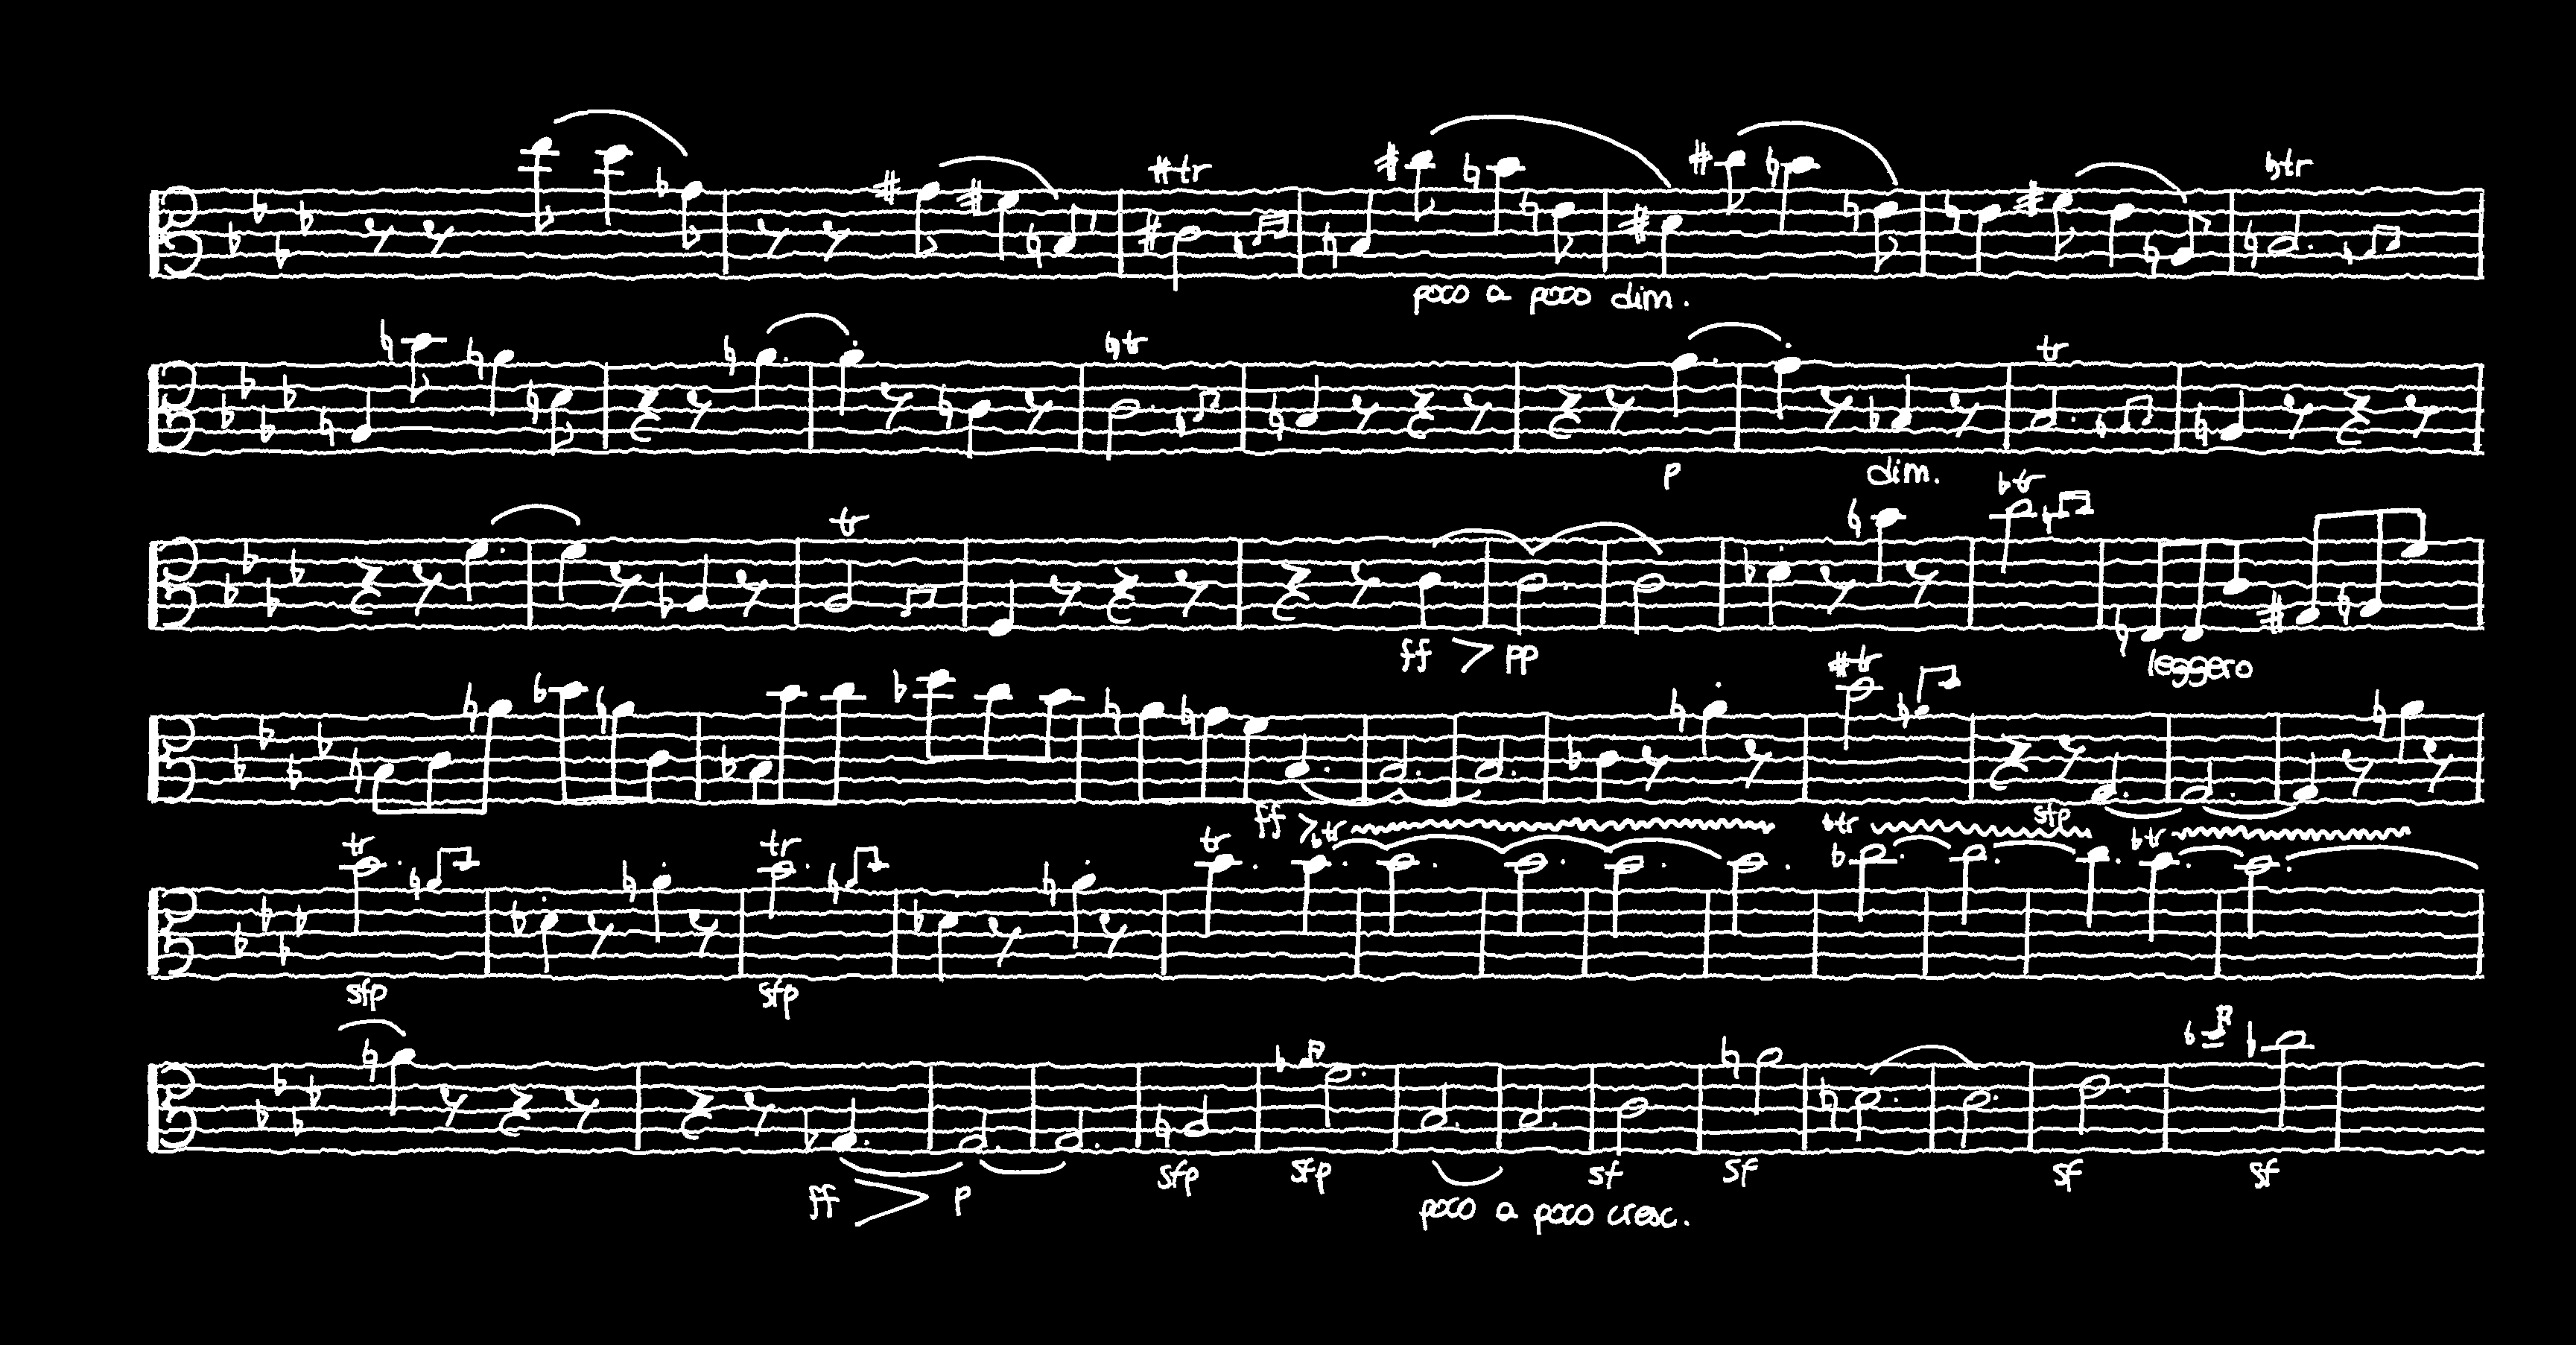 tr tr
poco a poco dim.
tr tr
p dim.
tr tr
ff pp leggero
tr
ff sfp
tr tr tr tr tr tr
sfp sfp
ff p sfp sfp sf sf sf sf
poco a poco cresc.